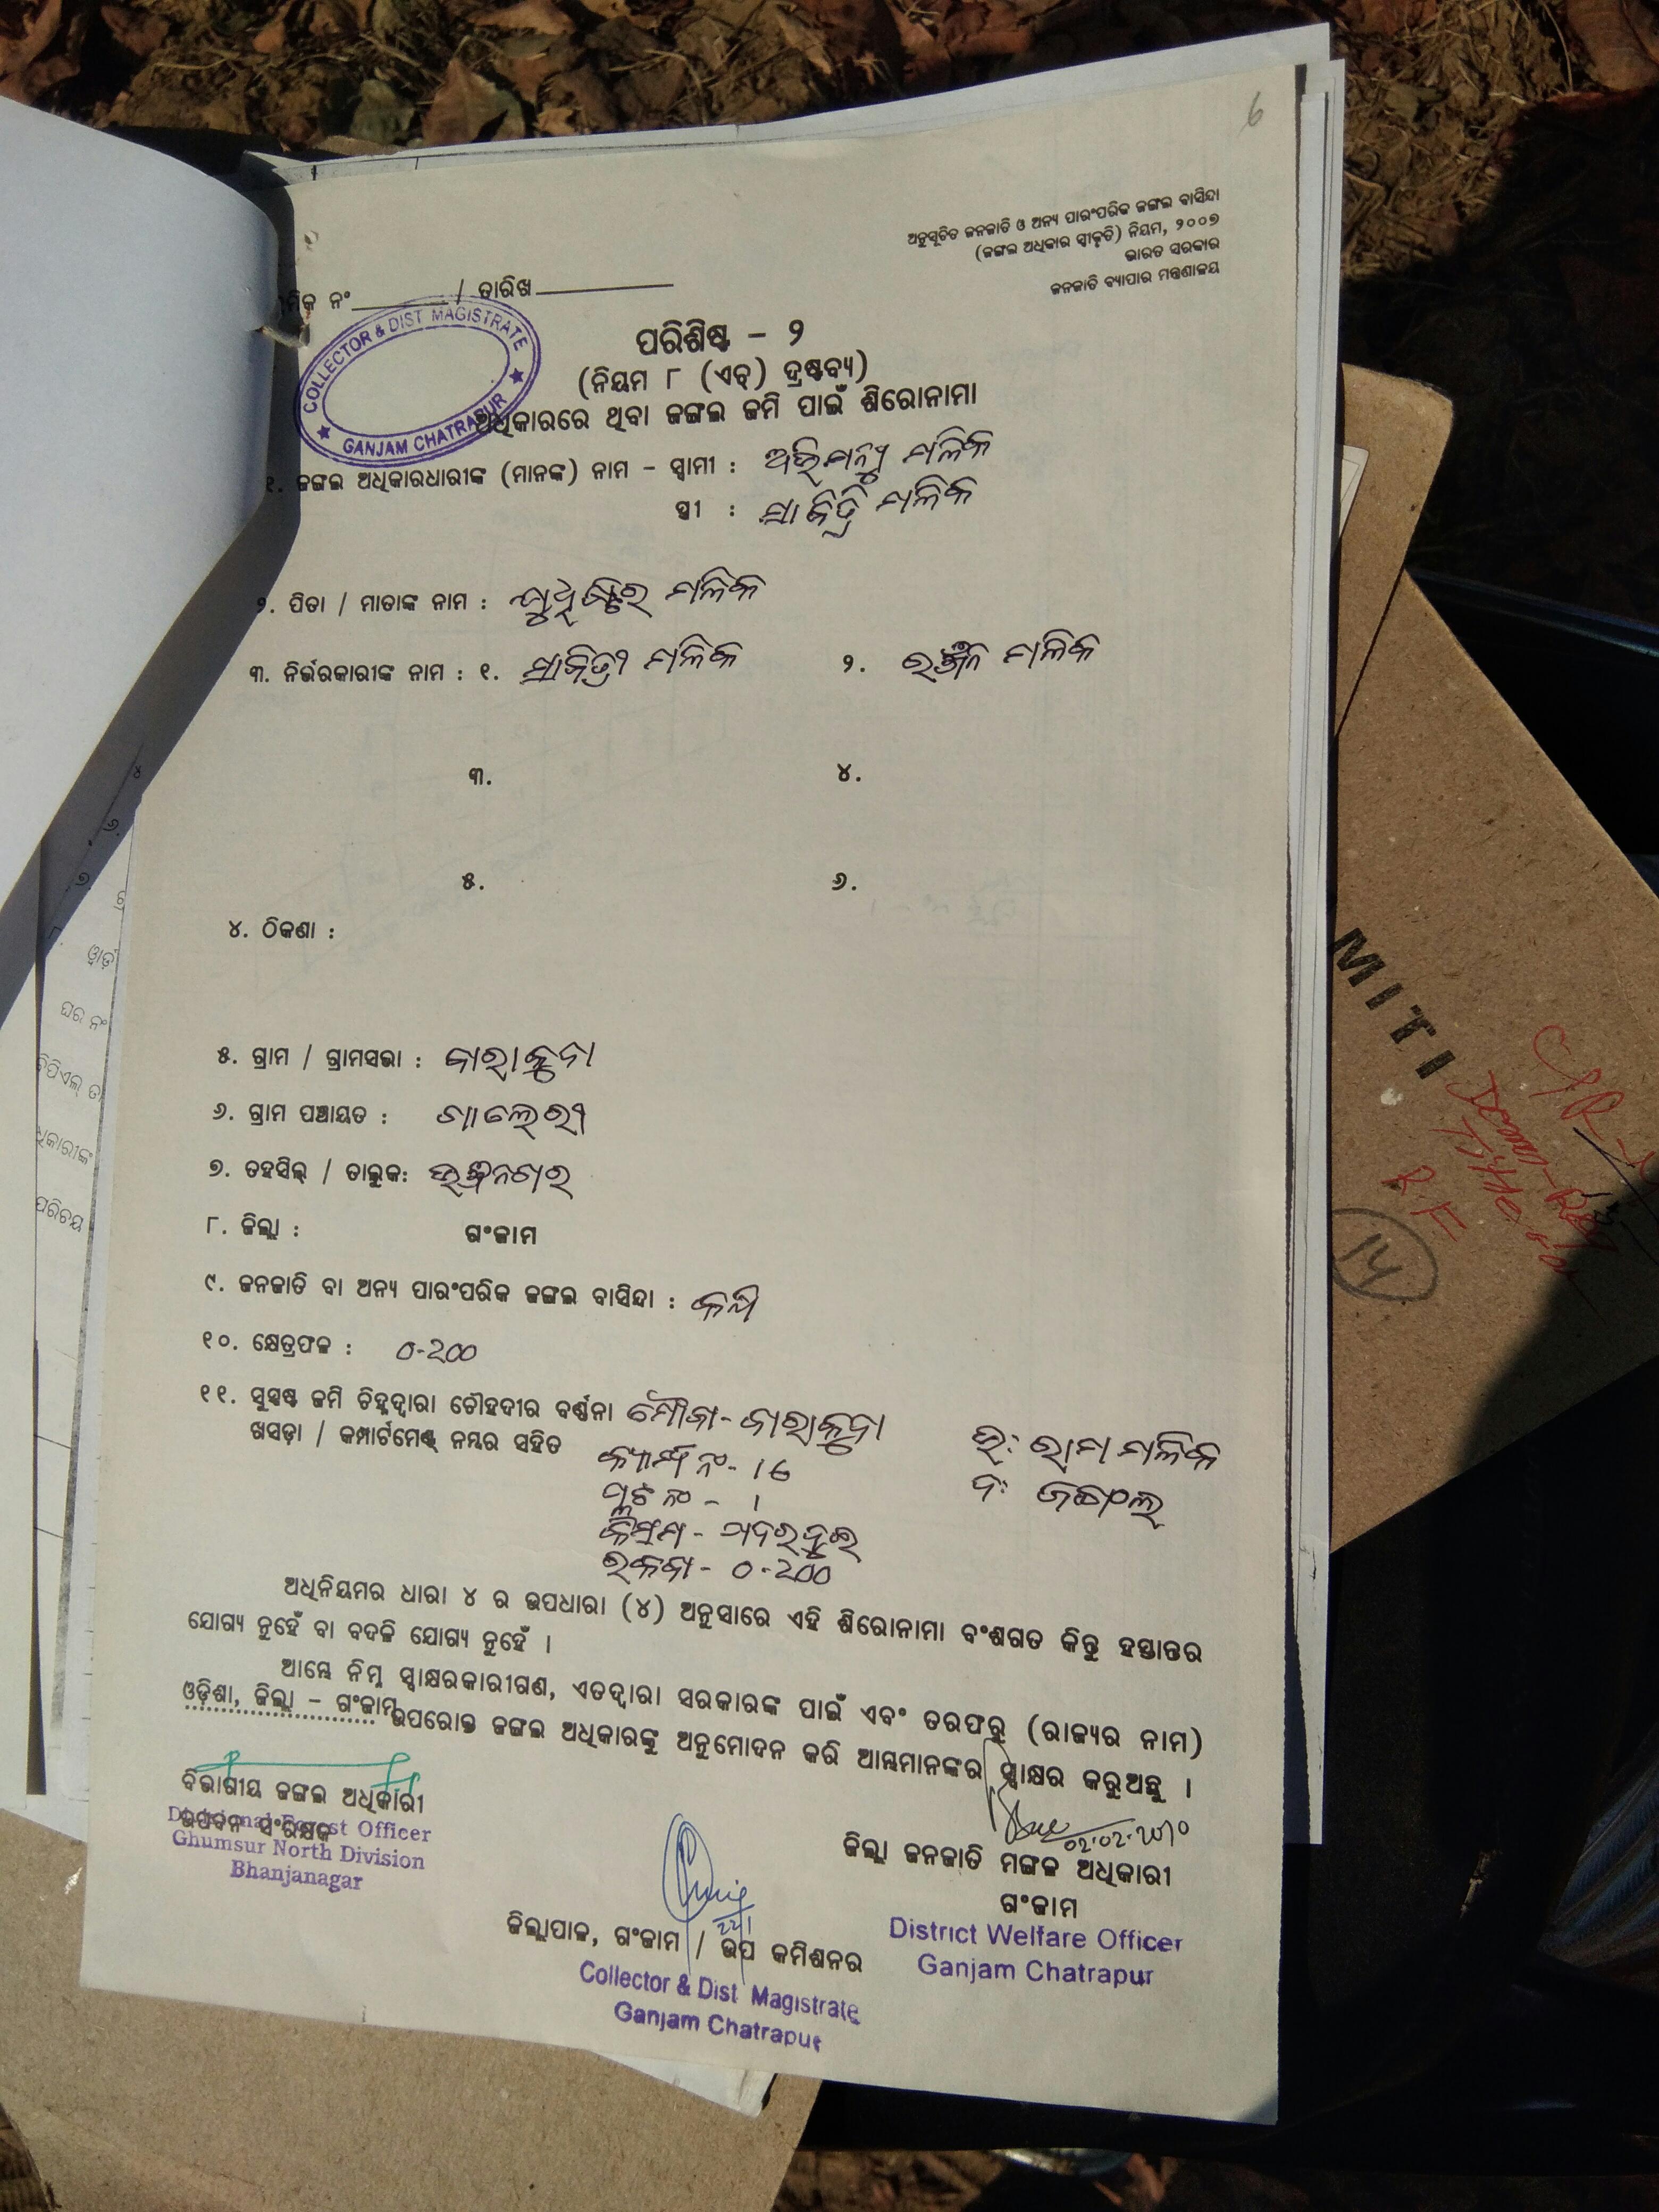 6
ଅନୁସୂଚିତ ଜନଜାତି ଓ ଅନ୍ୟ ପାରଂପରିକ ଜଙ୍ଗଲ ବାସିନ୍ଦା
(ଜଙ୍ଗଲ ଅଧିକାର ସ୍ୱୀକୃତି) ନିୟମ, ୨୦୦୭
ଭାରତ ସରକାର
ଜନଜାତି ବ୍ୟାପାର ମନ୍ତ୍ରଣାଳୟ
ନଂ / ତାରିଖ
COLLECTOR & DIST MAGISTRATE
GANJAM CHATRAPUR
ପରିଶିଷ୍ଟ - ୨
(ନିୟମ ୮ (ଏଚ୍) ଦ୍ରଷ୍ଟବ୍ୟ)
ଅଧିକାରରେ ଥିବା ଜଙ୍ଗଲ ଜମି ପାଇଁ ଶିରୋନାମା
୧. ଜଙ୍ଗଲ ଅଧିକାରଧାରୀଙ୍କ (ମାନଙ୍କ) ନାମ - ସ୍ୱାମୀ : ଅଭିମନ୍ୟୁ ମଲିକ
ସ୍ତ୍ରୀ : ସାବିତ୍ରି ମଲିକ
୨. ପିତା / ମାତାଙ୍କ ନାମ : ଯୁଧିଷ୍ଟିର ମଲିକ
୩. ନିର୍ଭରକାରୀଙ୍କ ନାମ : ୧. ସାବିତ୍ରୀ ମଲିକ ୨. ରଞ୍ଜନ ମଲିକ
୩. ୪.
୫. ୬.
୪. ଠିକଣା :
୫. ଗ୍ରାମ / ଗ୍ରାମସଭା : ବାରାକୁବା
୬. ଗ୍ରାମ ପଞ୍ଚାୟତ : ଗାଲେରୀ
୭. ତହସିଲ୍ / ତାଲୁକ: ଭଞ୍ଜନଗର
୮. ଜିଲ୍ଲା : ଗଂଜାମ
୯. ଜନଜାତି ବା ଅନ୍ୟ ପାରଂପରିକ ଜଙ୍ଗଲ ବାସିନ୍ଦା : କନ୍ଧ
୧୦. କ୍ଷେତ୍ରଫଳ : ୦-200
୧୧. ସୁସ୍ପଷ୍ଟ ଜମି ଚିହ୍ନଦ୍ୱାରା ଚୌହଦୀର ବର୍ଣ୍ଣନା ମୌଜା- ବାରାକୁବା ଉ: ରାମ ମଲିକ
ଖସଡ଼ା / କମ୍ପାର୍ଟମେଣ୍ଟ୍ ନମ୍ବର ସହିତ ନଂ- 16 ଦ: ଜଙ୍ଗଲ
ପ୍ଲଟ ନଂ - 1
କିସମ -
ରକବା- ୦-200
ଅଧିନିୟମର ଧାରା ୪ ର ଉପଧାରା (୪) ଅନୁସାରେ ଏହି ଶିରୋନାମା ବଂଶଗତ କିନ୍ତୁ ହସ୍ତାନ୍ତର
ଯୋଗ୍ୟ ନୁହେଁ ବା ବଦଳି ଯୋଗ୍ୟ ନୁହେଁ ।
ଆମ୍ଭେ ନିମ୍ନ ସ୍ୱାକ୍ଷରକାରୀଗଣ, ଏତଦ୍ୱାରା ସରକାରଙ୍କ ପାଇଁ ଏବଂ ତରଫରୁ (ରାଜ୍ୟର ନାମ)
ଓଡ଼ିଶା, ଜିଲ୍ଲା - ଗଂଜାମ ଉପରୋକ୍ତ ଜଙ୍ଗଲ ଅଧିକାରଙ୍କୁ ଅନୁମୋଦନ କରି ଆମ୍ଭମାନଙ୍କର ସ୍ୱାକ୍ଷର କରୁଅଛୁ ।
ବିଭାଗୀୟ ଜଙ୍ଗଲ ଅଧିକାରୀ
ଉପବନ ସଂରକ୍ଷକ
Divisional Forest Officer
Ghumsur North Division
Bhanjanagar
02.02.2010
ଜିଲ୍ଲା ଜନଜାତି ମଙ୍ଗଳ ଅଧିକାରୀ
ଗଂଜାମ
District Welfare Officer
Ganjam Chatrapur
ଜିଲ୍ଲାପାଳ, ଗଂଜାମ / ଉପ କମିଶନର
Collector & Dist Magistrate
Ganjam Chatrapur
ଘର ନଂ
ପରିଚୟ
MITI
14